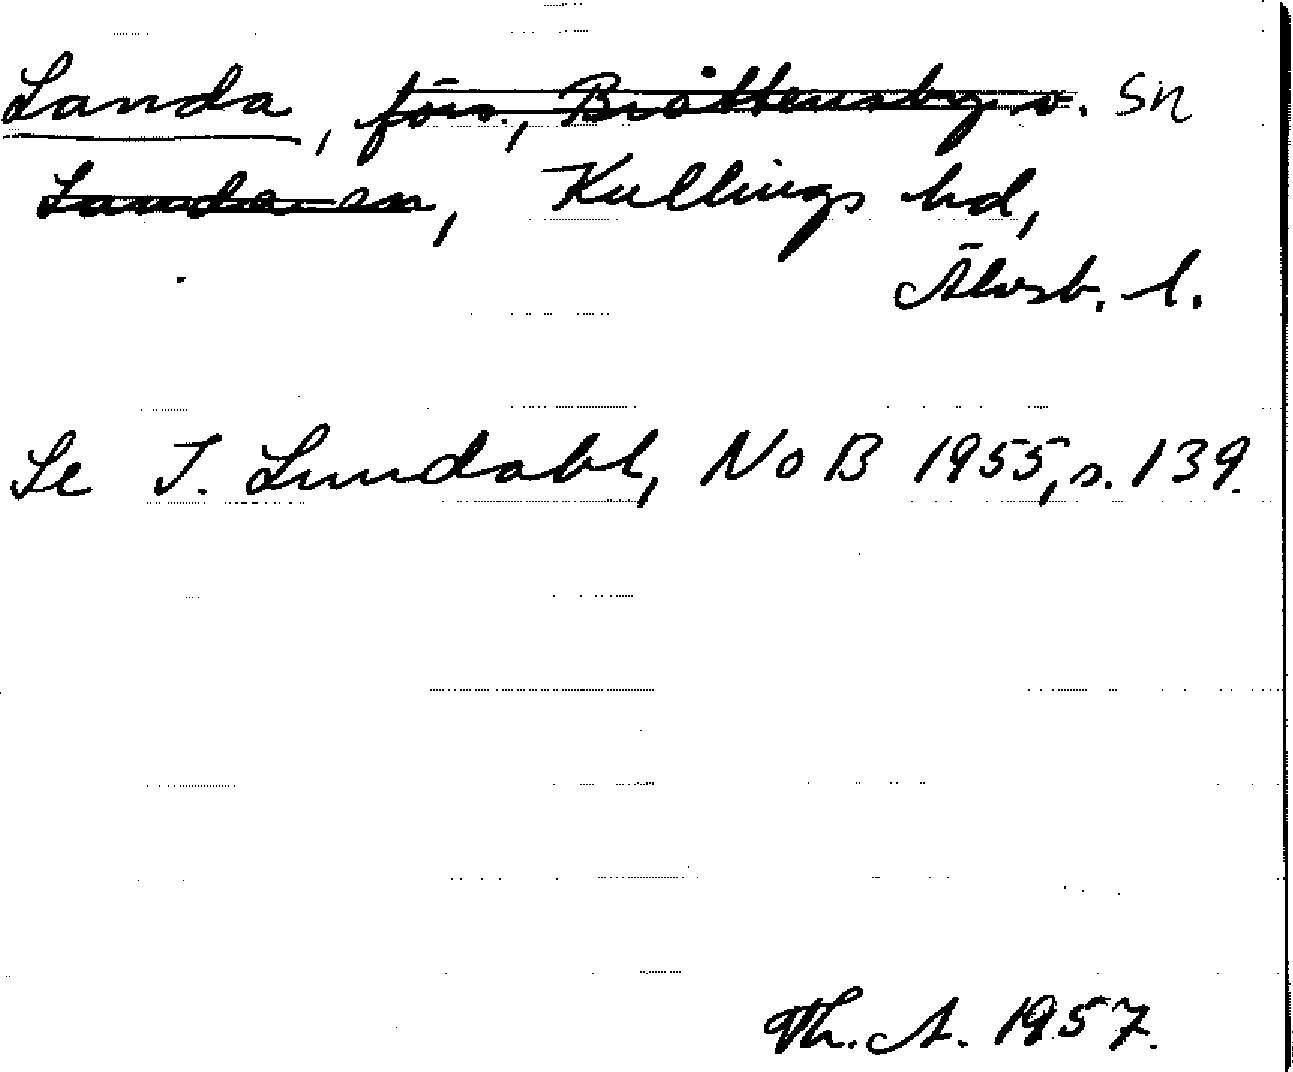 Landa, förs., Bråttensby s. Sn
Landa sn, Kullings hd,
Älvsb. l.
Se I. Lundahl, NoB 1955, s. 139.
Th. A. 1957.